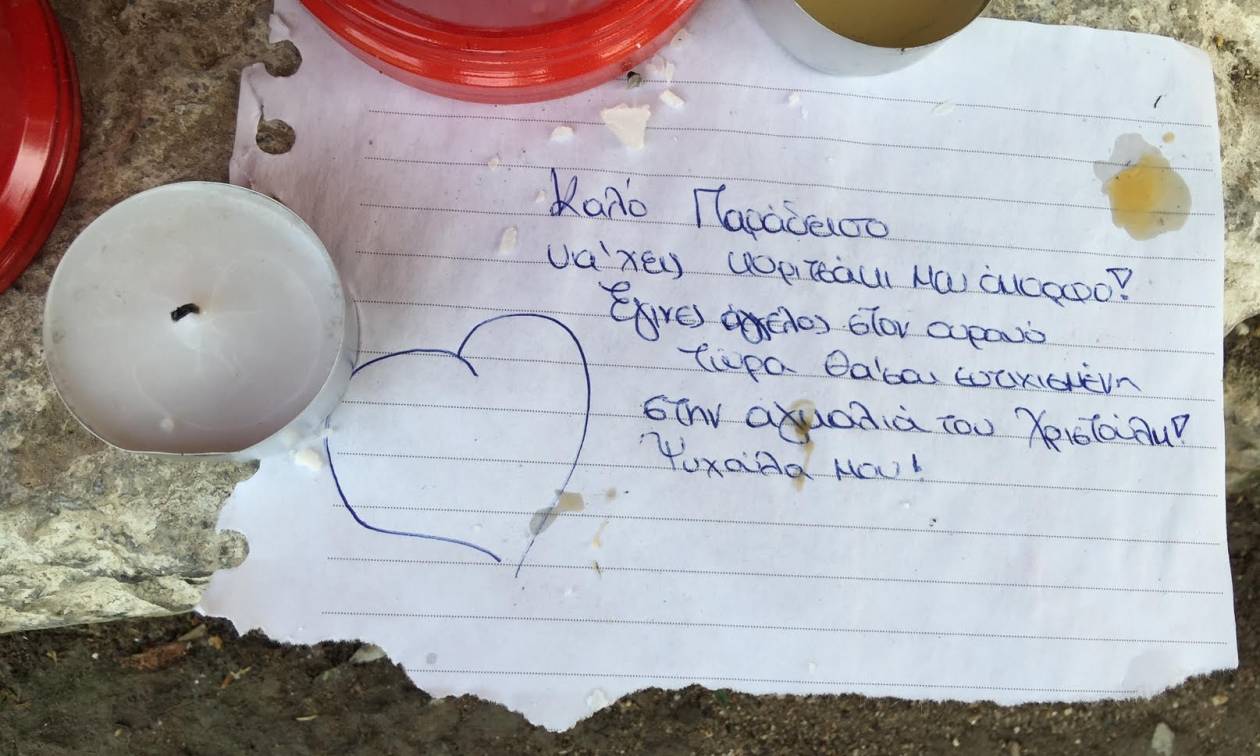 Καλό Παράδεισο
να'χεις κοριτσάκι μου όμορφο!
Έγινες άγγελος στον ουρανό
τώρα θα'σαι ευτυχισμένη
στην αγκαλιά του Χριστούλη!
Ψυχούλα μου!